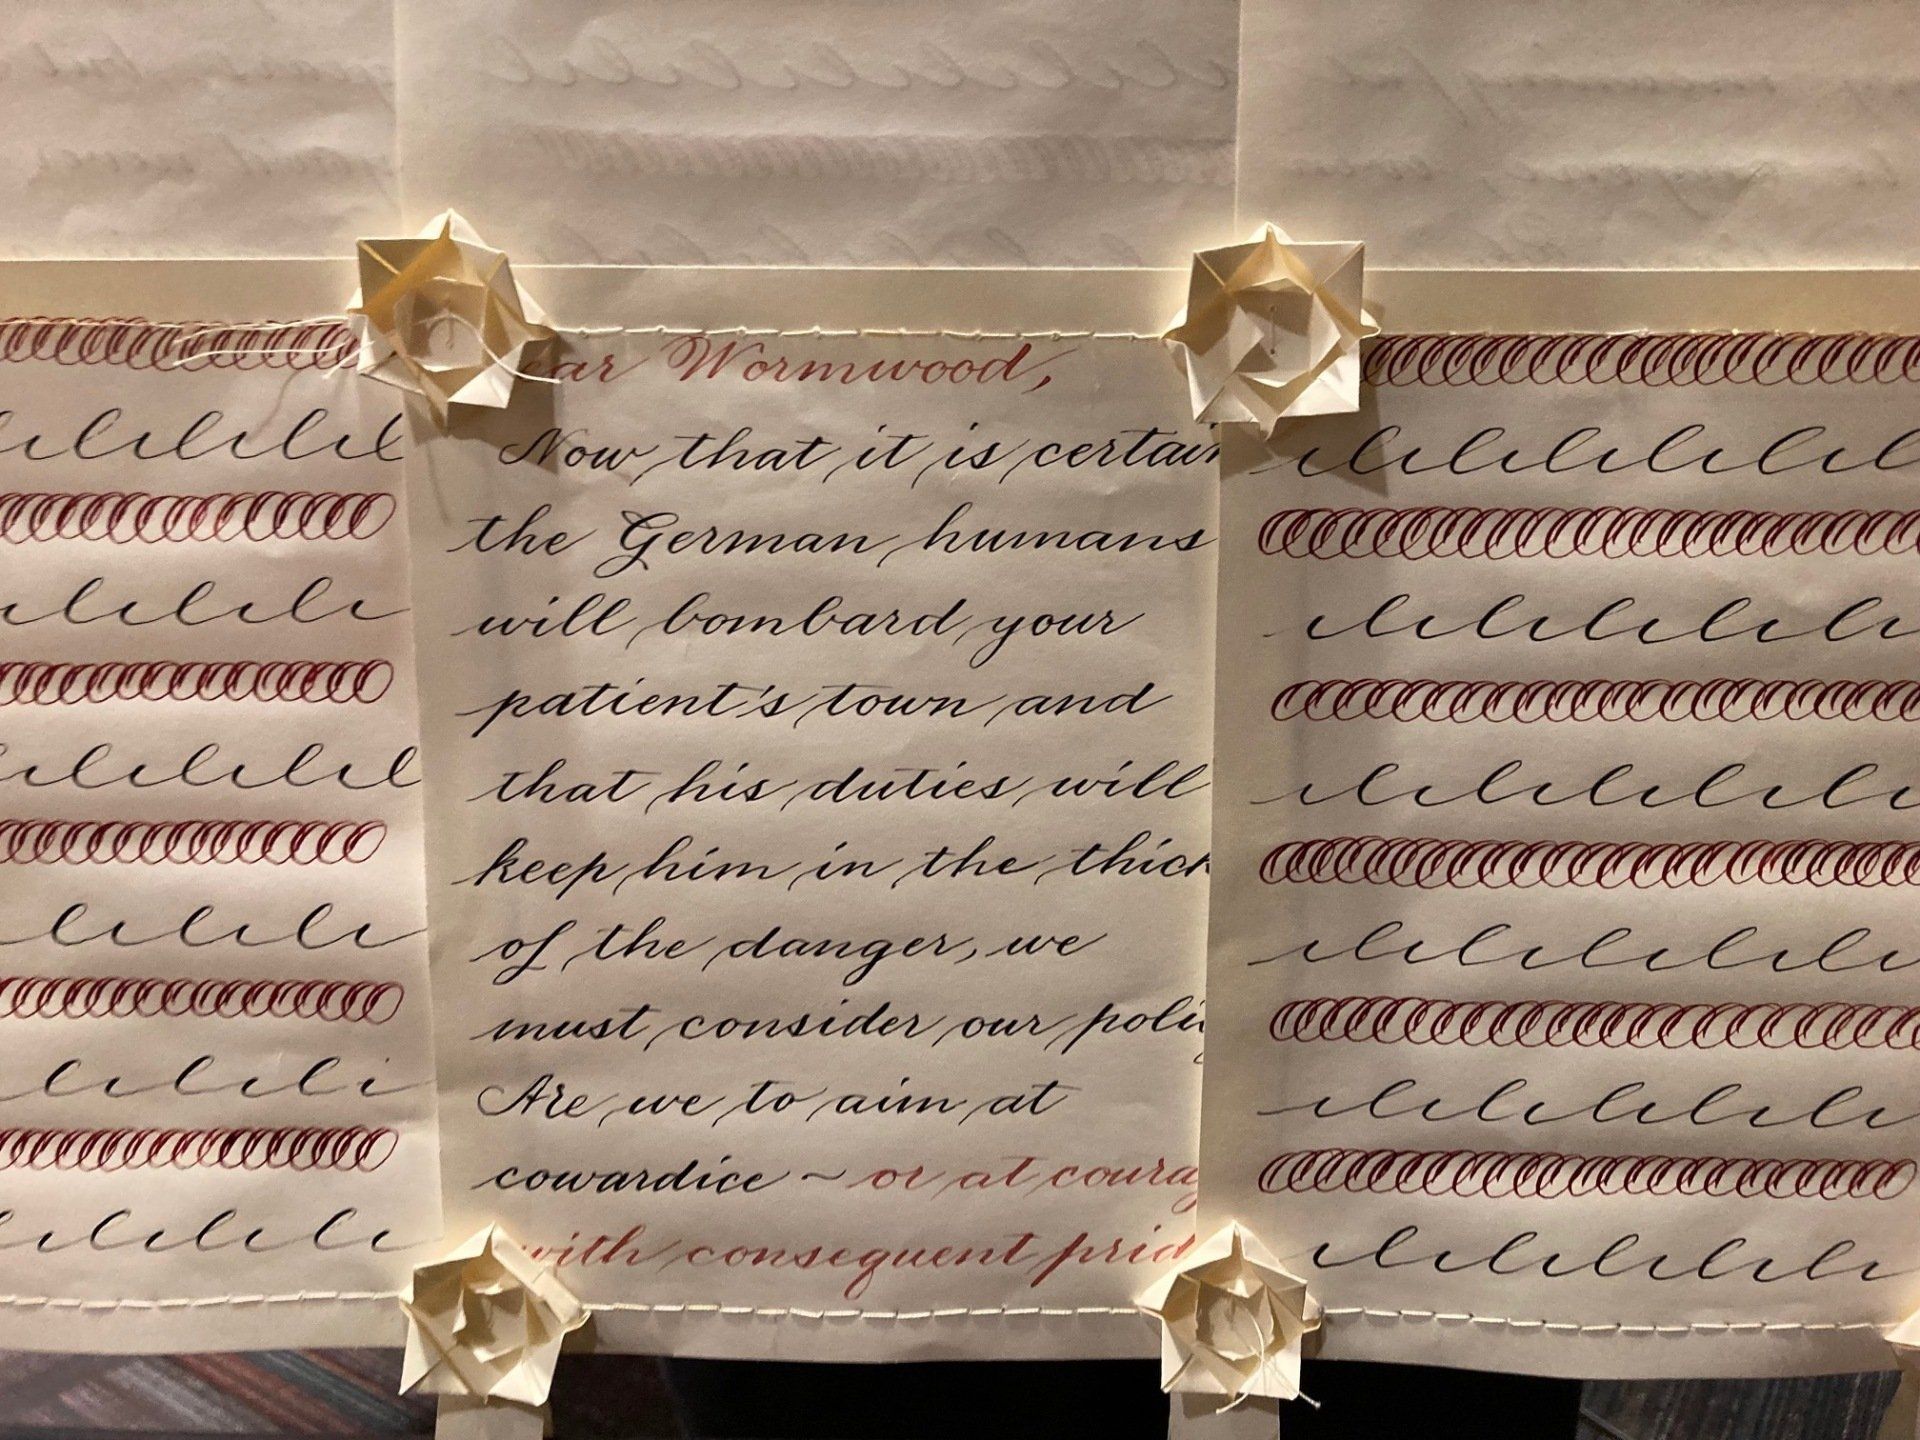 ear Wormwood,
Now that it is certain
the German humans
will bombard your
patient's town and
that his duties will
keep him in the thick
of the danger, we
must consider our poli
Are we to aim at
cowardice ~ or at courag
with consequent prid